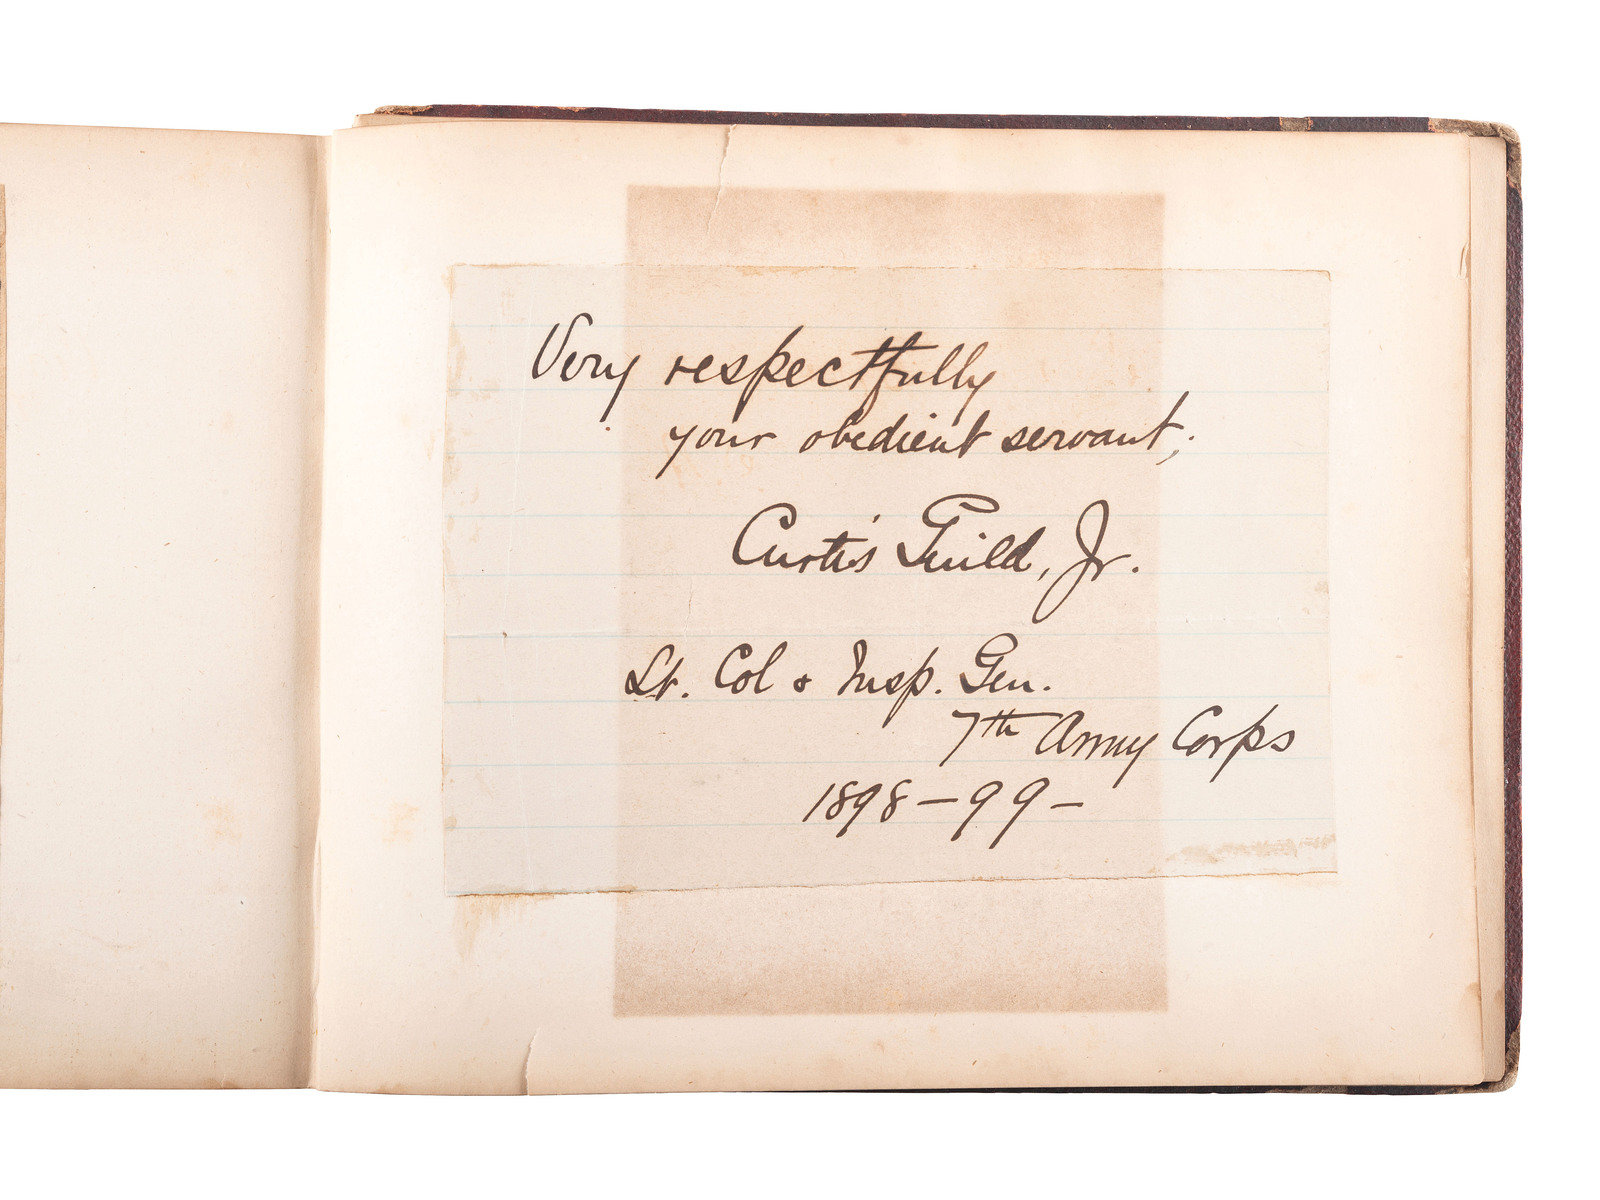 Very respectfully
your obedient servant,
Curtis Guild, Jr.
Lt. Col & Insp. Gen.
7th Army Corps
1898-99-